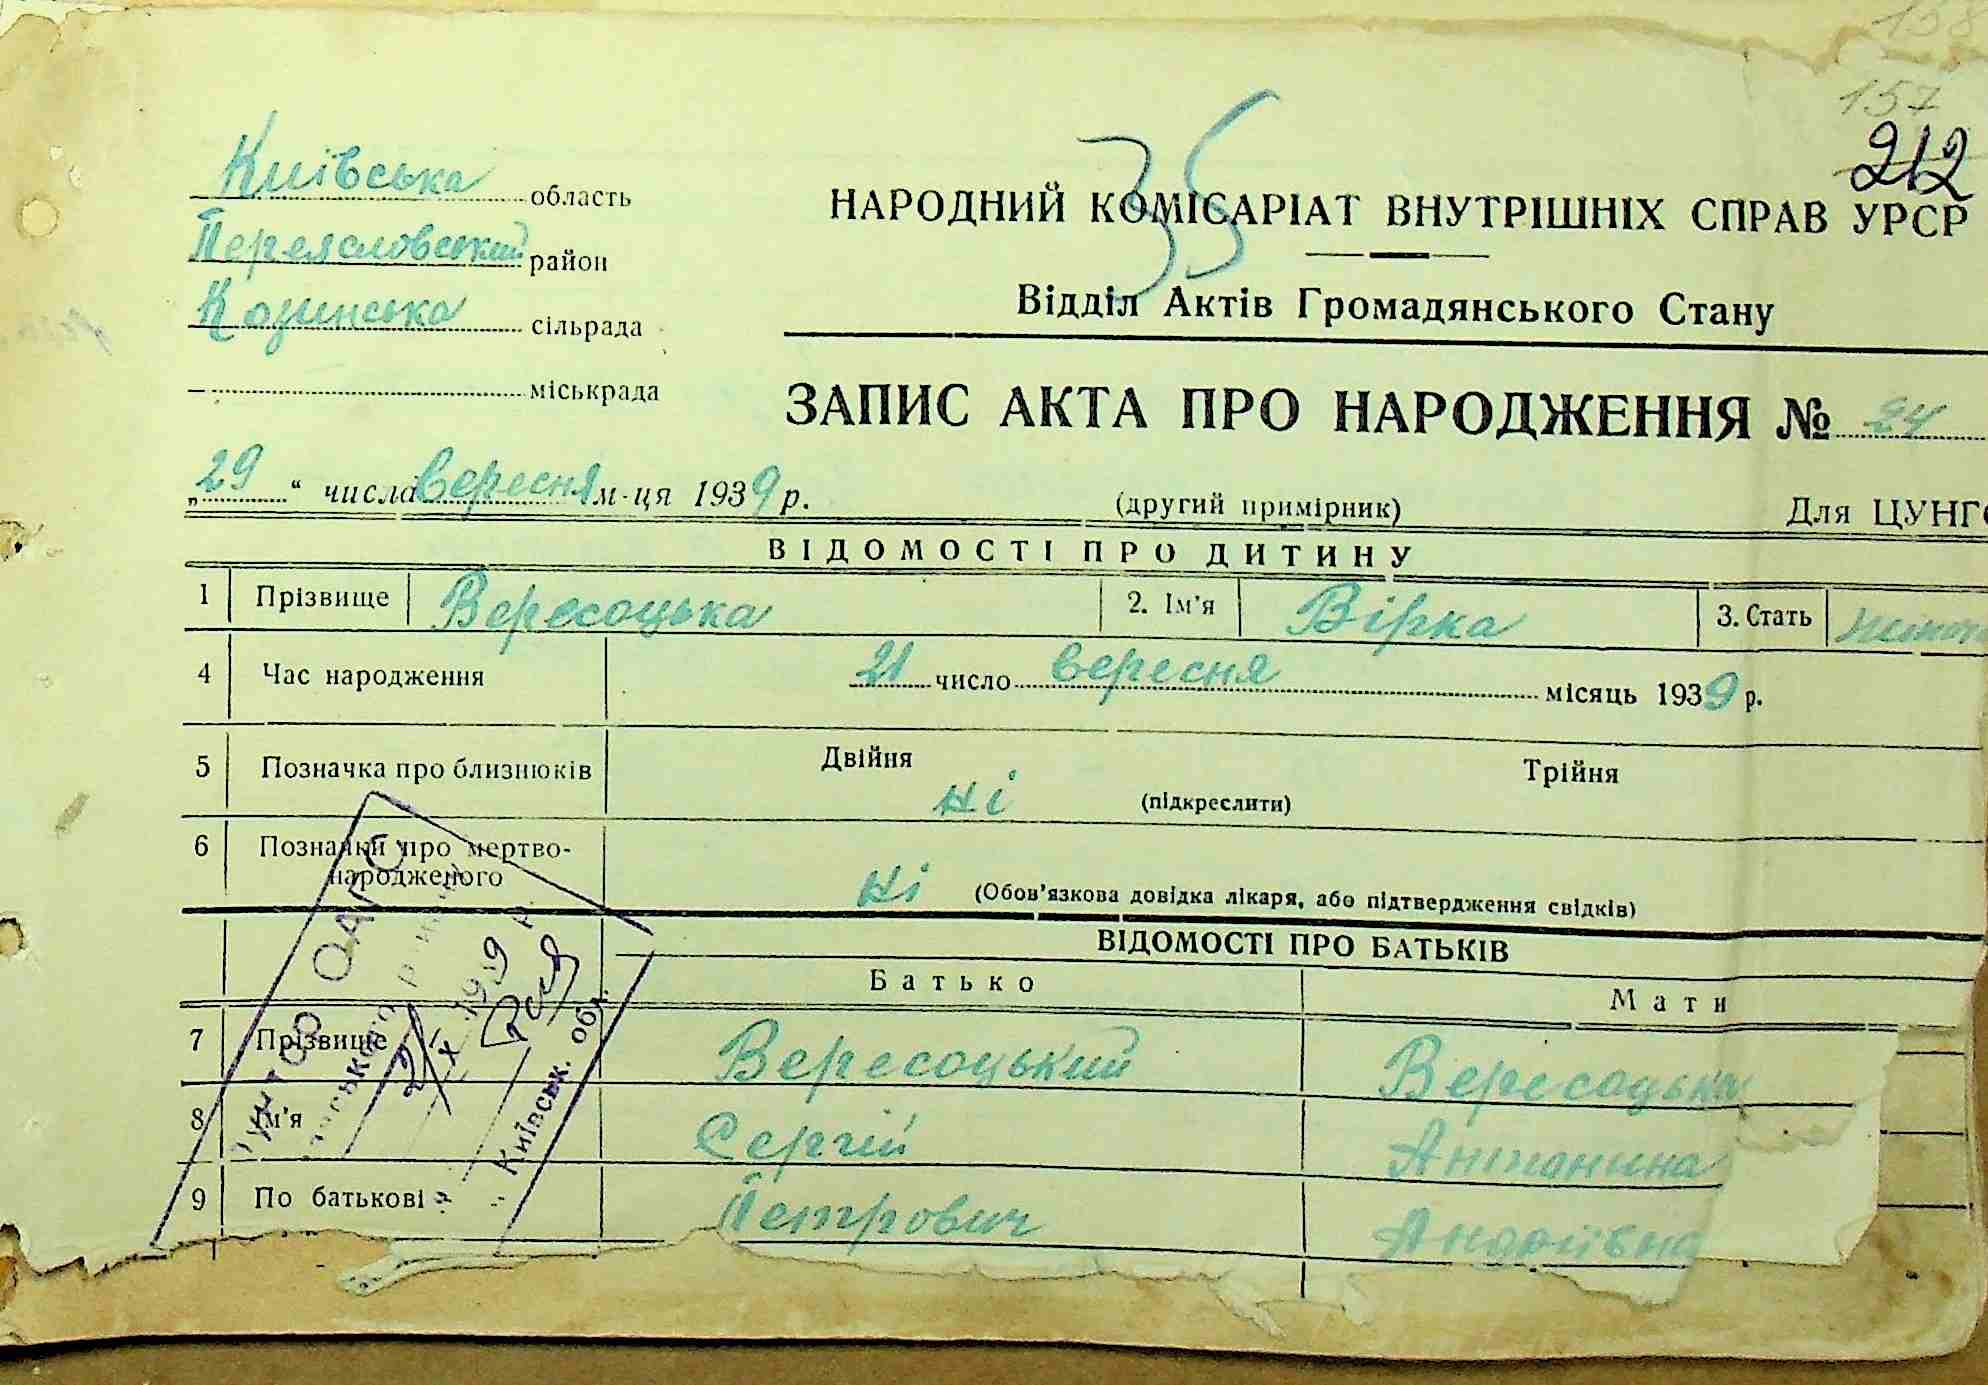 158
157
212
35
Київська область
Переясловський район
Козинська сільрада
— міськрада
НАРОДНИЙ КОМІСАРІАТ ВНУТРІШНІХ СПРАВ УРСР
Відділ Актів Громадянського Стану
ЗАПИС АКТА ПРО НАРОДЖЕННЯ № 24
„29“ числа вересня м-ця 1939 р. (другий примірник) Для ЦУНГО
ВІДОМОСТІ ПРО ДИТИНУ
1 Прізвище Вересоцька 2. Ім'я Вірка 3. Стать
4 Час народження 21 число вересня місяць 1939 р.
5 Позначка про близнюків Двійня ні (підкреслити) Трійня
6 Позначки про мертво-
народженого ні (Обов'язкова довідка лікаря, або підтвердження свідків)
ВІДОМОСТІ ПРО БАТЬКІВ
Батько Мати
7 Прізвище Вересоцький Вересоцька
8 Ім'я Сергій Антонина
9 По батькові Петрович Андріївна
ОАГС
Київськ. обл.